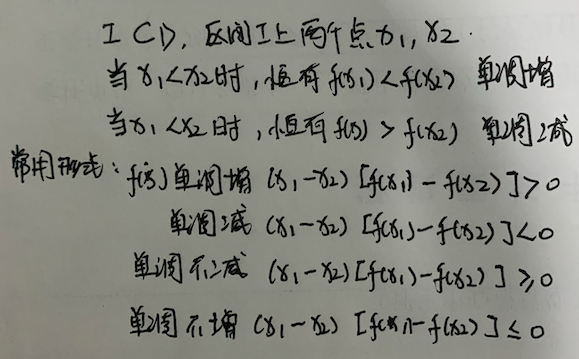 I⊂D, 区间I上两个点x₁, x₂.
当x₁<x₂时, 恒有f(x₁)<f(x₂) 单调增
当x₁<x₂时, 恒有f(x₁)>f(x₂) 单调减
常用形式: f(x)单调增 (x₁-x₂)[f(x₁)-f(x₂)]>0
单调减 (x₁-x₂)[f(x₁)-f(x₂)]<0
单调不减 (x₁-x₂)[f(x₁)-f(x₂)]≥0
单调不增 (x₁-x₂)[f(x₁)-f(x₂)]≤0